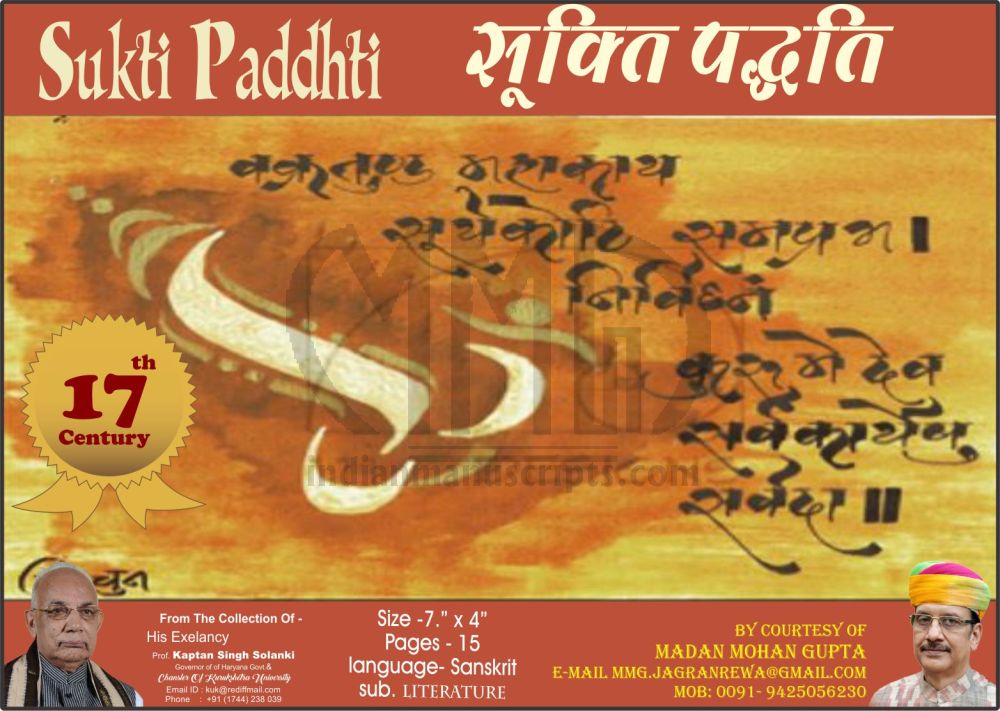 Sukti Paddhti
सूक्ति पद्धति
वक्रतुण्ड महाकाय
सूर्यकोटि समप्रभ ।
निर्विघ्नं
कुरु मे देव
सर्वकार्येषु
सर्वदा ॥
MMG
indianmanuscripts.com
17th
Century
From The Collection Of -
His Exelancy
Prof. Kaptan Singh Solanki
Governor of of Haryana Govt &
Chansler Of Kurukshtra University
Email ID : kuk@rediffmail.com
Phone : +91 (1744) 238 039
Size -7.” x 4”
Pages - 15
language- Sanskrit
sub. LITERATURE
BY COURTESY OF
MADAN MOHAN GUPTA
E-MAIL MMG.JAGRANREWA@GMAIL.COM
MOB: 0091- 9425056230